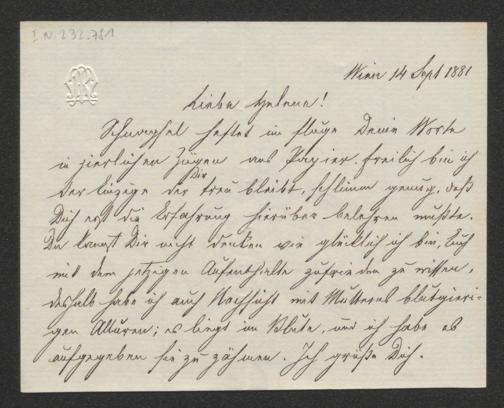 I.N. 232.781
Wien 14 Sept 1881
Liebe Helene!
Schnupfel heftet im Fluge Deine Worte
in zierlichen Zügen ans Papier. Freilich bin ich
der Einzige der Dir treu bleibt, schlimm genug, daß
Dich erst die Erfahrung hierüber belehren mußte.
Du kannst Dir nicht denken wie glücklich ich bin, Euch
mit dem jetzigen Aufenthalte zufrieden zu wissen,
deshalb habe ich auch Nachsicht mit Mutterns blutgieri-
gen Alluren; es liegt im Blute, und ich habe es
aufgegeben sie zu zähmen. Ich grüße Dich.